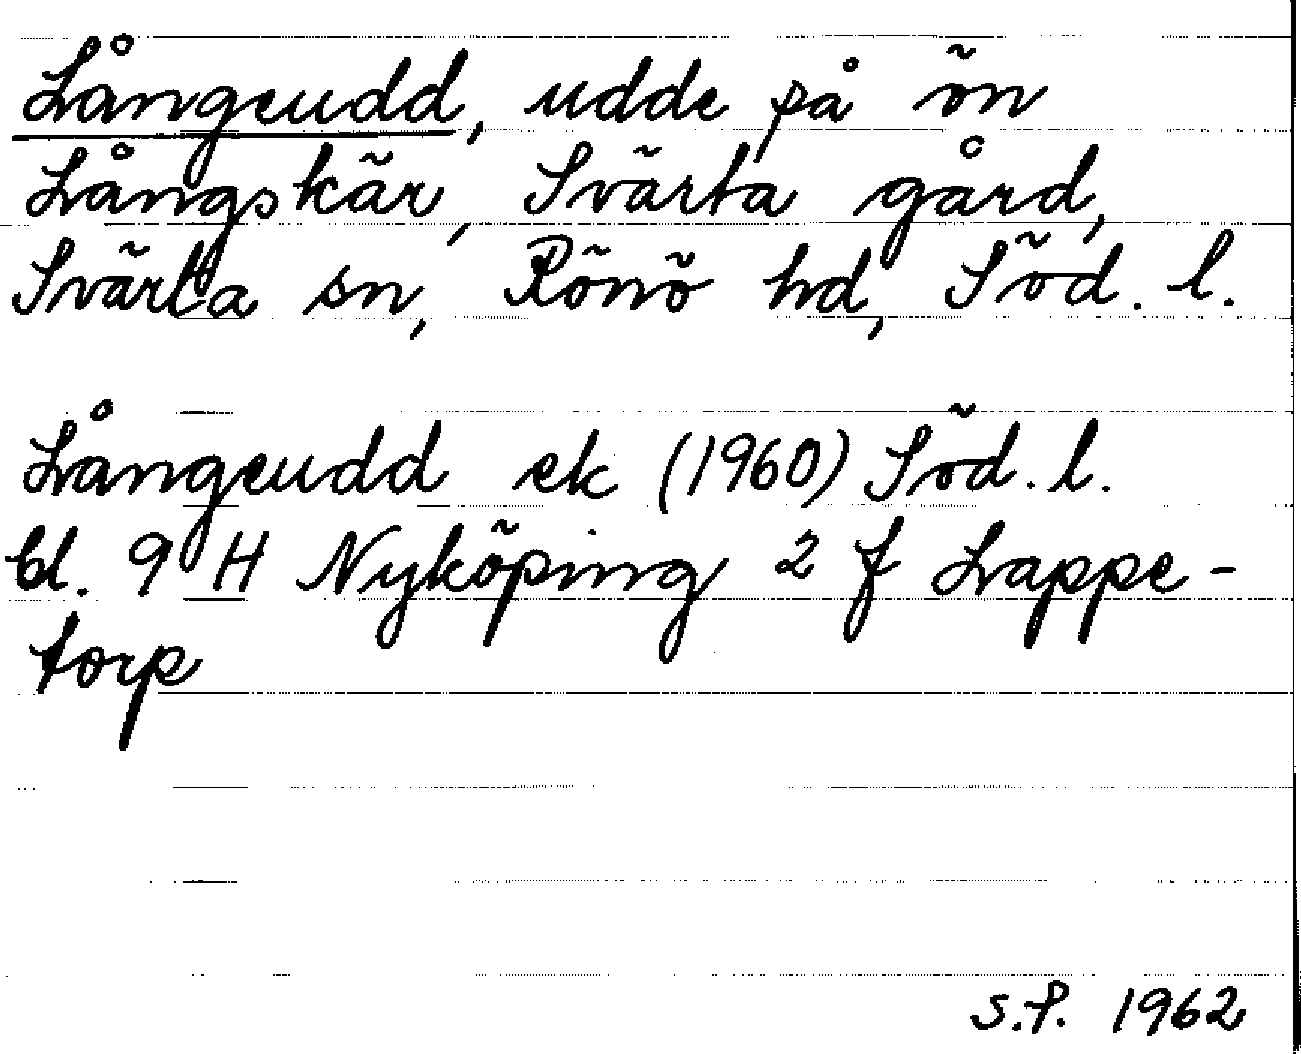 Långeudd, udde på ön
Långskär, Svärta gård,
Svärta sn, Rönö hd, Söd. l.
Långeudd ek (1960) Söd. l.
bl. 9 H Nyköping 2 f Lappe-
torp
S.P. 1962